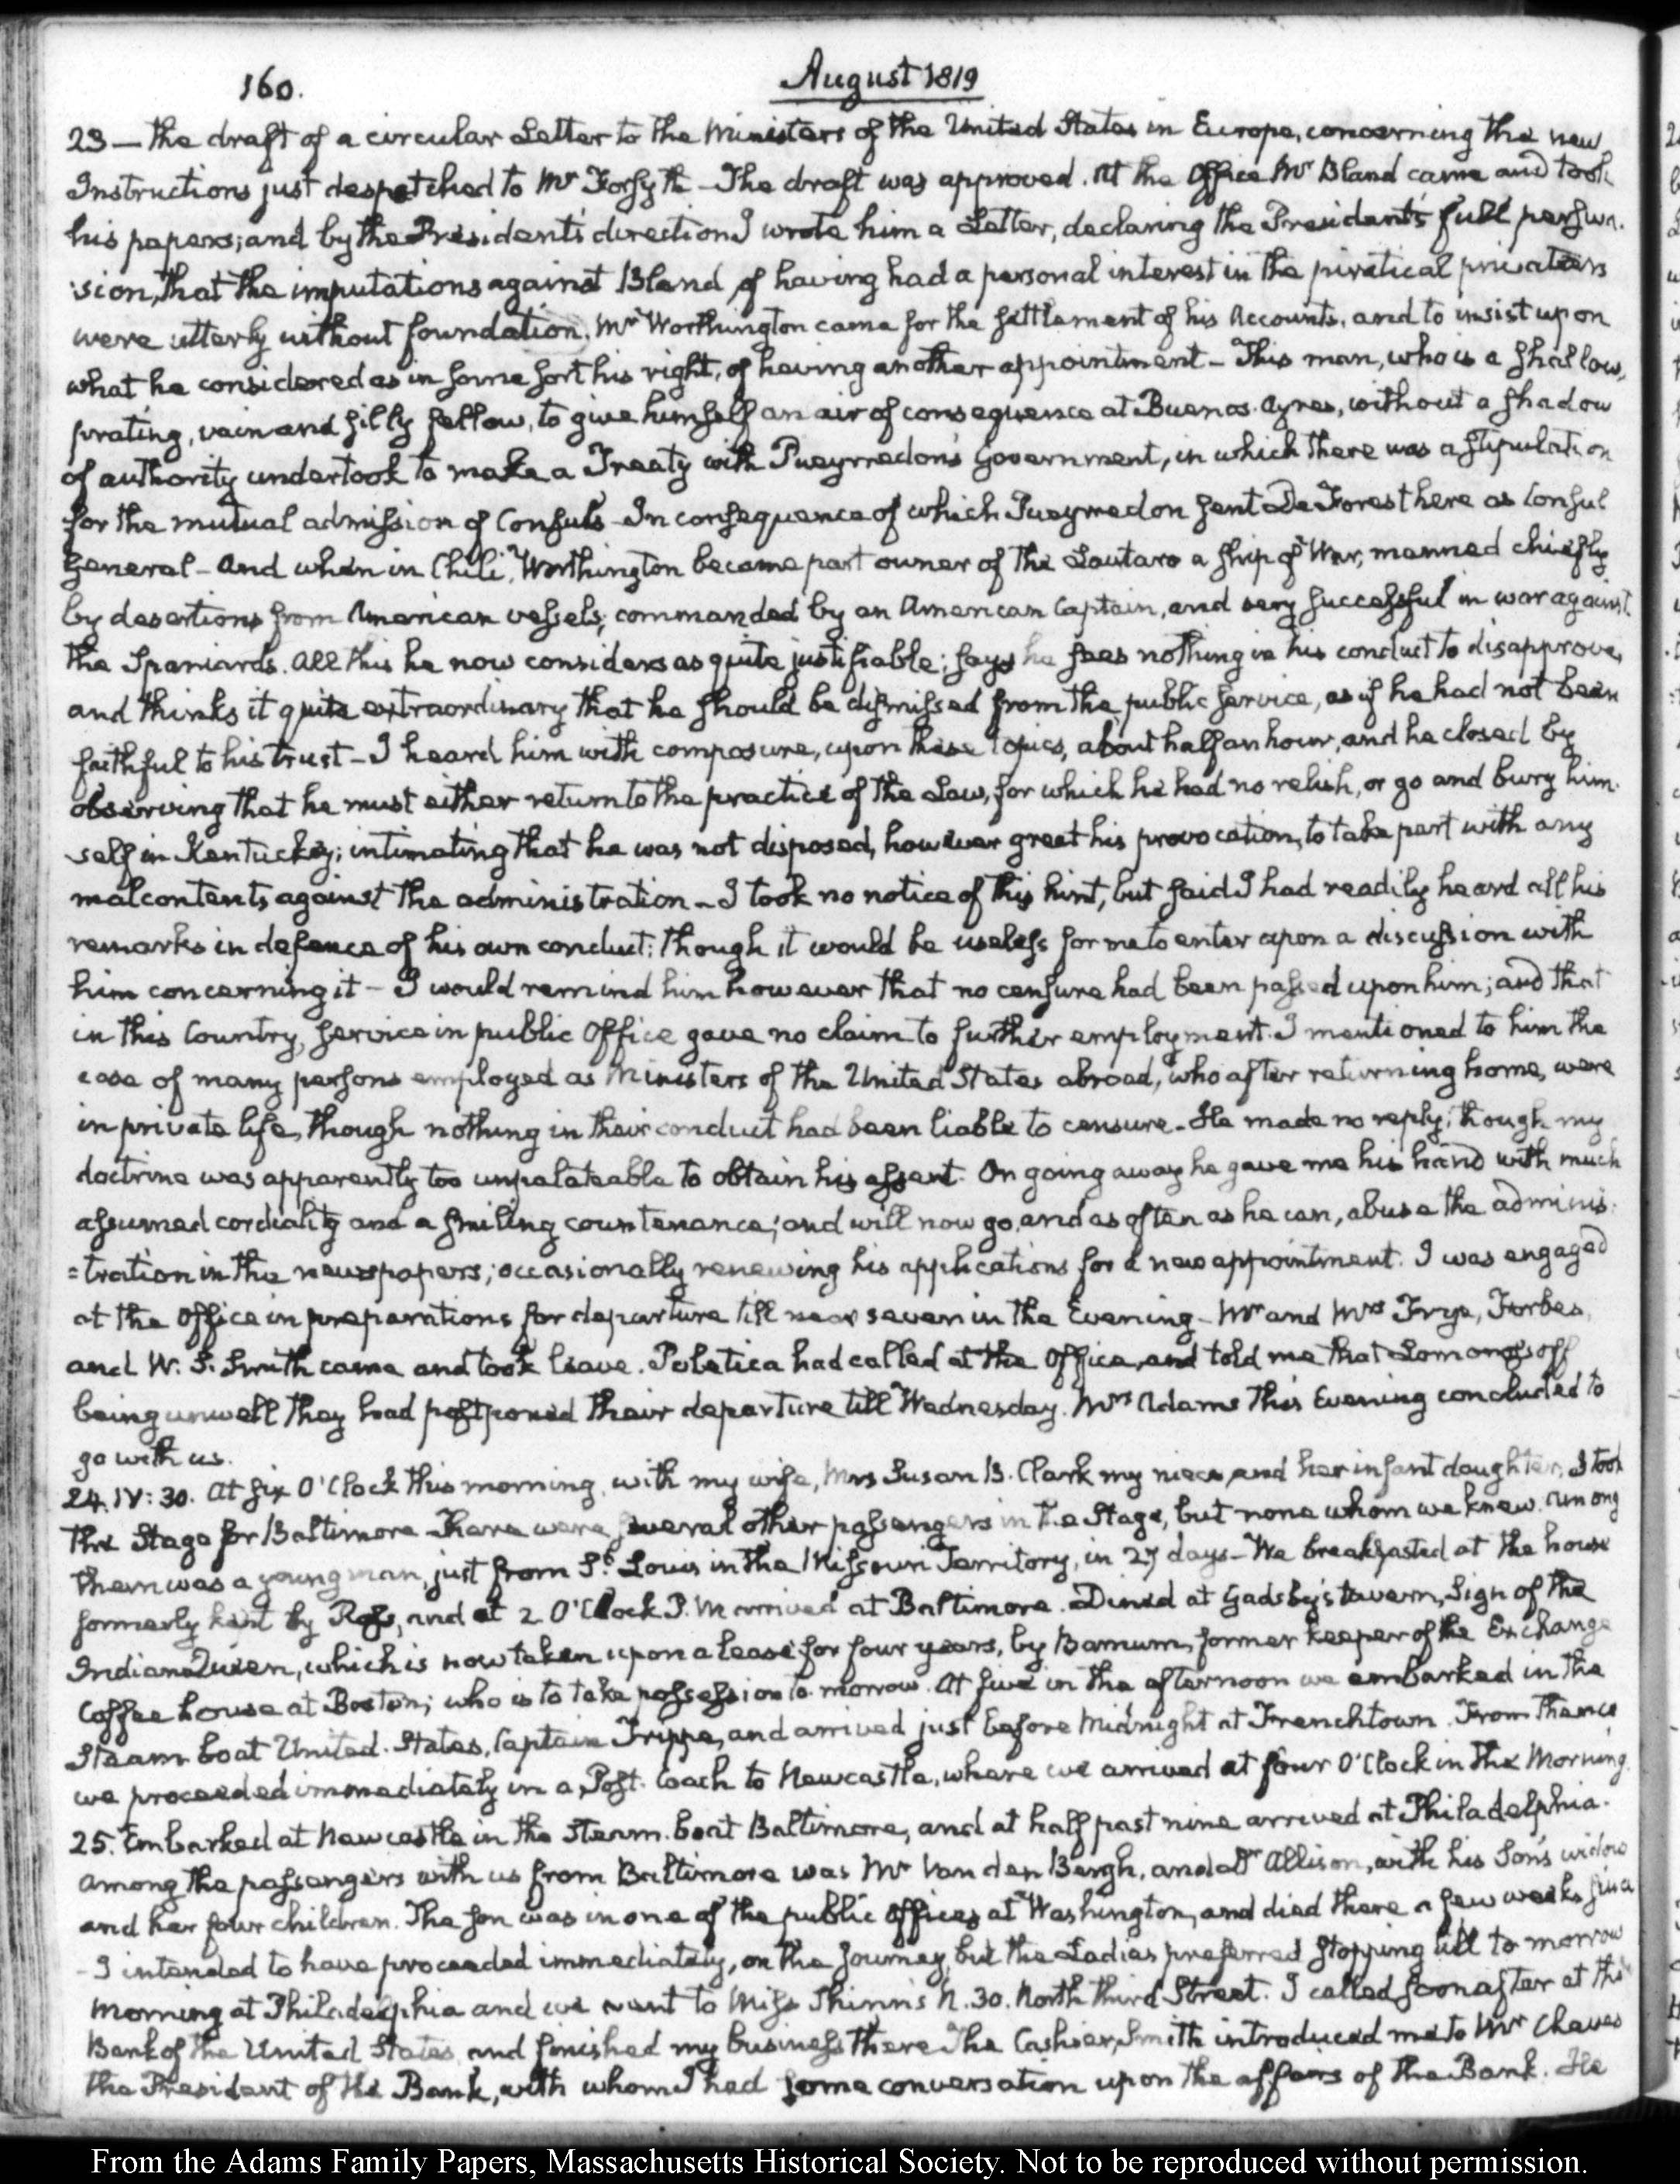 160. August 1819
23 — the draft of a circular Letter to the Ministers of the United States in Europe, concerning the new
Instructions just despatched to Mr Forsyth – The draft was approved. At the Office Mr Bland came and took
his papers; and by the President's direction I wrote him a Letter, declaring the President's full perswa-
:sion, that the imputations against Bland of having had a personal interest in the piratical privateers
were utterly without foundation. Mr Worthington came for the settlement of his Accounts, and to insist upon
what he considered as in some sort his right, of having another appointment – This man, who is a shallow,
prating, vain and silly fellow, to give himself an air of consequence at Buenos-Ayres, without a shadow
of authority undertook to make a Treaty with Pueyrredon's Government, in which there was a stipulation
for the mutual admission of Consuls – In consequence of which Pueyrredon sent De Forest here as Consul
General – And when in Chili, Worthington became part owner of the Lautaro a ship of War, manned chiefly
by desertions from American vessels; commanded by an American Captain, and very successful in war against
the Spaniards. All this he now considers as quite justifiable; says he sees nothing in his conduct to disapprove,
and thinks it quite extraordinary that he should be dismissed from the public service, as if he had not been
faithful to his trust – I heard him with composure, upon these topics, about half an hour, and he closed by
observing that he must either return to the practice of the Law, for which he had no relish, or go and bury him-
self in Kentucky; intimating that he was not disposed, however great his provocation, to take part with any
malcontents against the administration – I took no notice of this hint, but said I had readily heard all his
remarks in defence of his own conduct: though it would be useless for me to enter upon a discussion with
him concerning it – I would remind him however that no censure had been passed upon him; and that
in this Country, service in public Office gave no claim to further employment. I mentioned to him the
case of many persons employed as Ministers of the United States abroad, who after returning home, were
in private life, though nothing in their conduct had been liable to censure – He made no reply; though my
doctrine was apparently too unpalateable to obtain his assent. On going away he gave me his hand with much
assumed cordiality and a smiling countenance; and will now go, and as often as he can, abuse the adminis-
=tration in the newspapers; occasionally renewing his applications for a new appointment. I was engaged
at the Office in preparations for departure till near seven in the Evening – Mr and Mrs Frye, Forbes,
and W. S. Smith came and took leave. Poletica had called at the Office, and told me that Lomonosoff
being unwell they had postponed their departure till Wednesday. Mrs Adams this Evening concluded to
go with us.
24. IV: 30. At six O'Clock this morning, with my wife, Mrs Susan B. Clark my niece, and her infant daughter, I took
the Stage for Baltimore – There were several other passengers in the Stage, but none whom we knew. Among
them was a young man, just from St. Louis in the Missouri Territory, in 27 days – We breakfasted at the house
formerly kept by Ross, and at 2 O'Clock P.M arrived at Baltimore. Dined at Gadsby's tavern, Sign of the
Indian Queen, which is now taken upon a lease for four years, by Barnum, former keeper of the Exchange
Coffee house at Boston; who is to take possession to-morrow. At five in the afternoon we embarked in the
Steam boat United-States, Captain Trippe, and arrived just before Midnight at Frenchtown. From thence
we proceeded immediately in a Post-Coach to Newcastle, where we arrived at four O'Clock in the Morning.
25. Embarked at Newcastle in the Steam-boat Baltimore, and at half past nine arrived at Philadelphia.
Among the passengers with us from Baltimore was Mr Van den Bergh, and a Dr Allison, with his Son's widow
and her four children. The son was in one of the public Offices at Washington, and died there a few weeks since
– I intended to have proceeded immediately, on the Journey, but the Ladies preferred stopping till to morrow
morning at Philadelphia and we went to Miss Shinn's N. 30. North third Street. I called soon after at the
Bank of the United States and finished my business there – The Cashier, Smith introduced me to Mr Cheves
the President of the Bank, with whom I had some conversation upon the affairs of the Bank. He
From the Adams Family Papers, Massachusetts Historical Society. Not to be reproduced without permission.